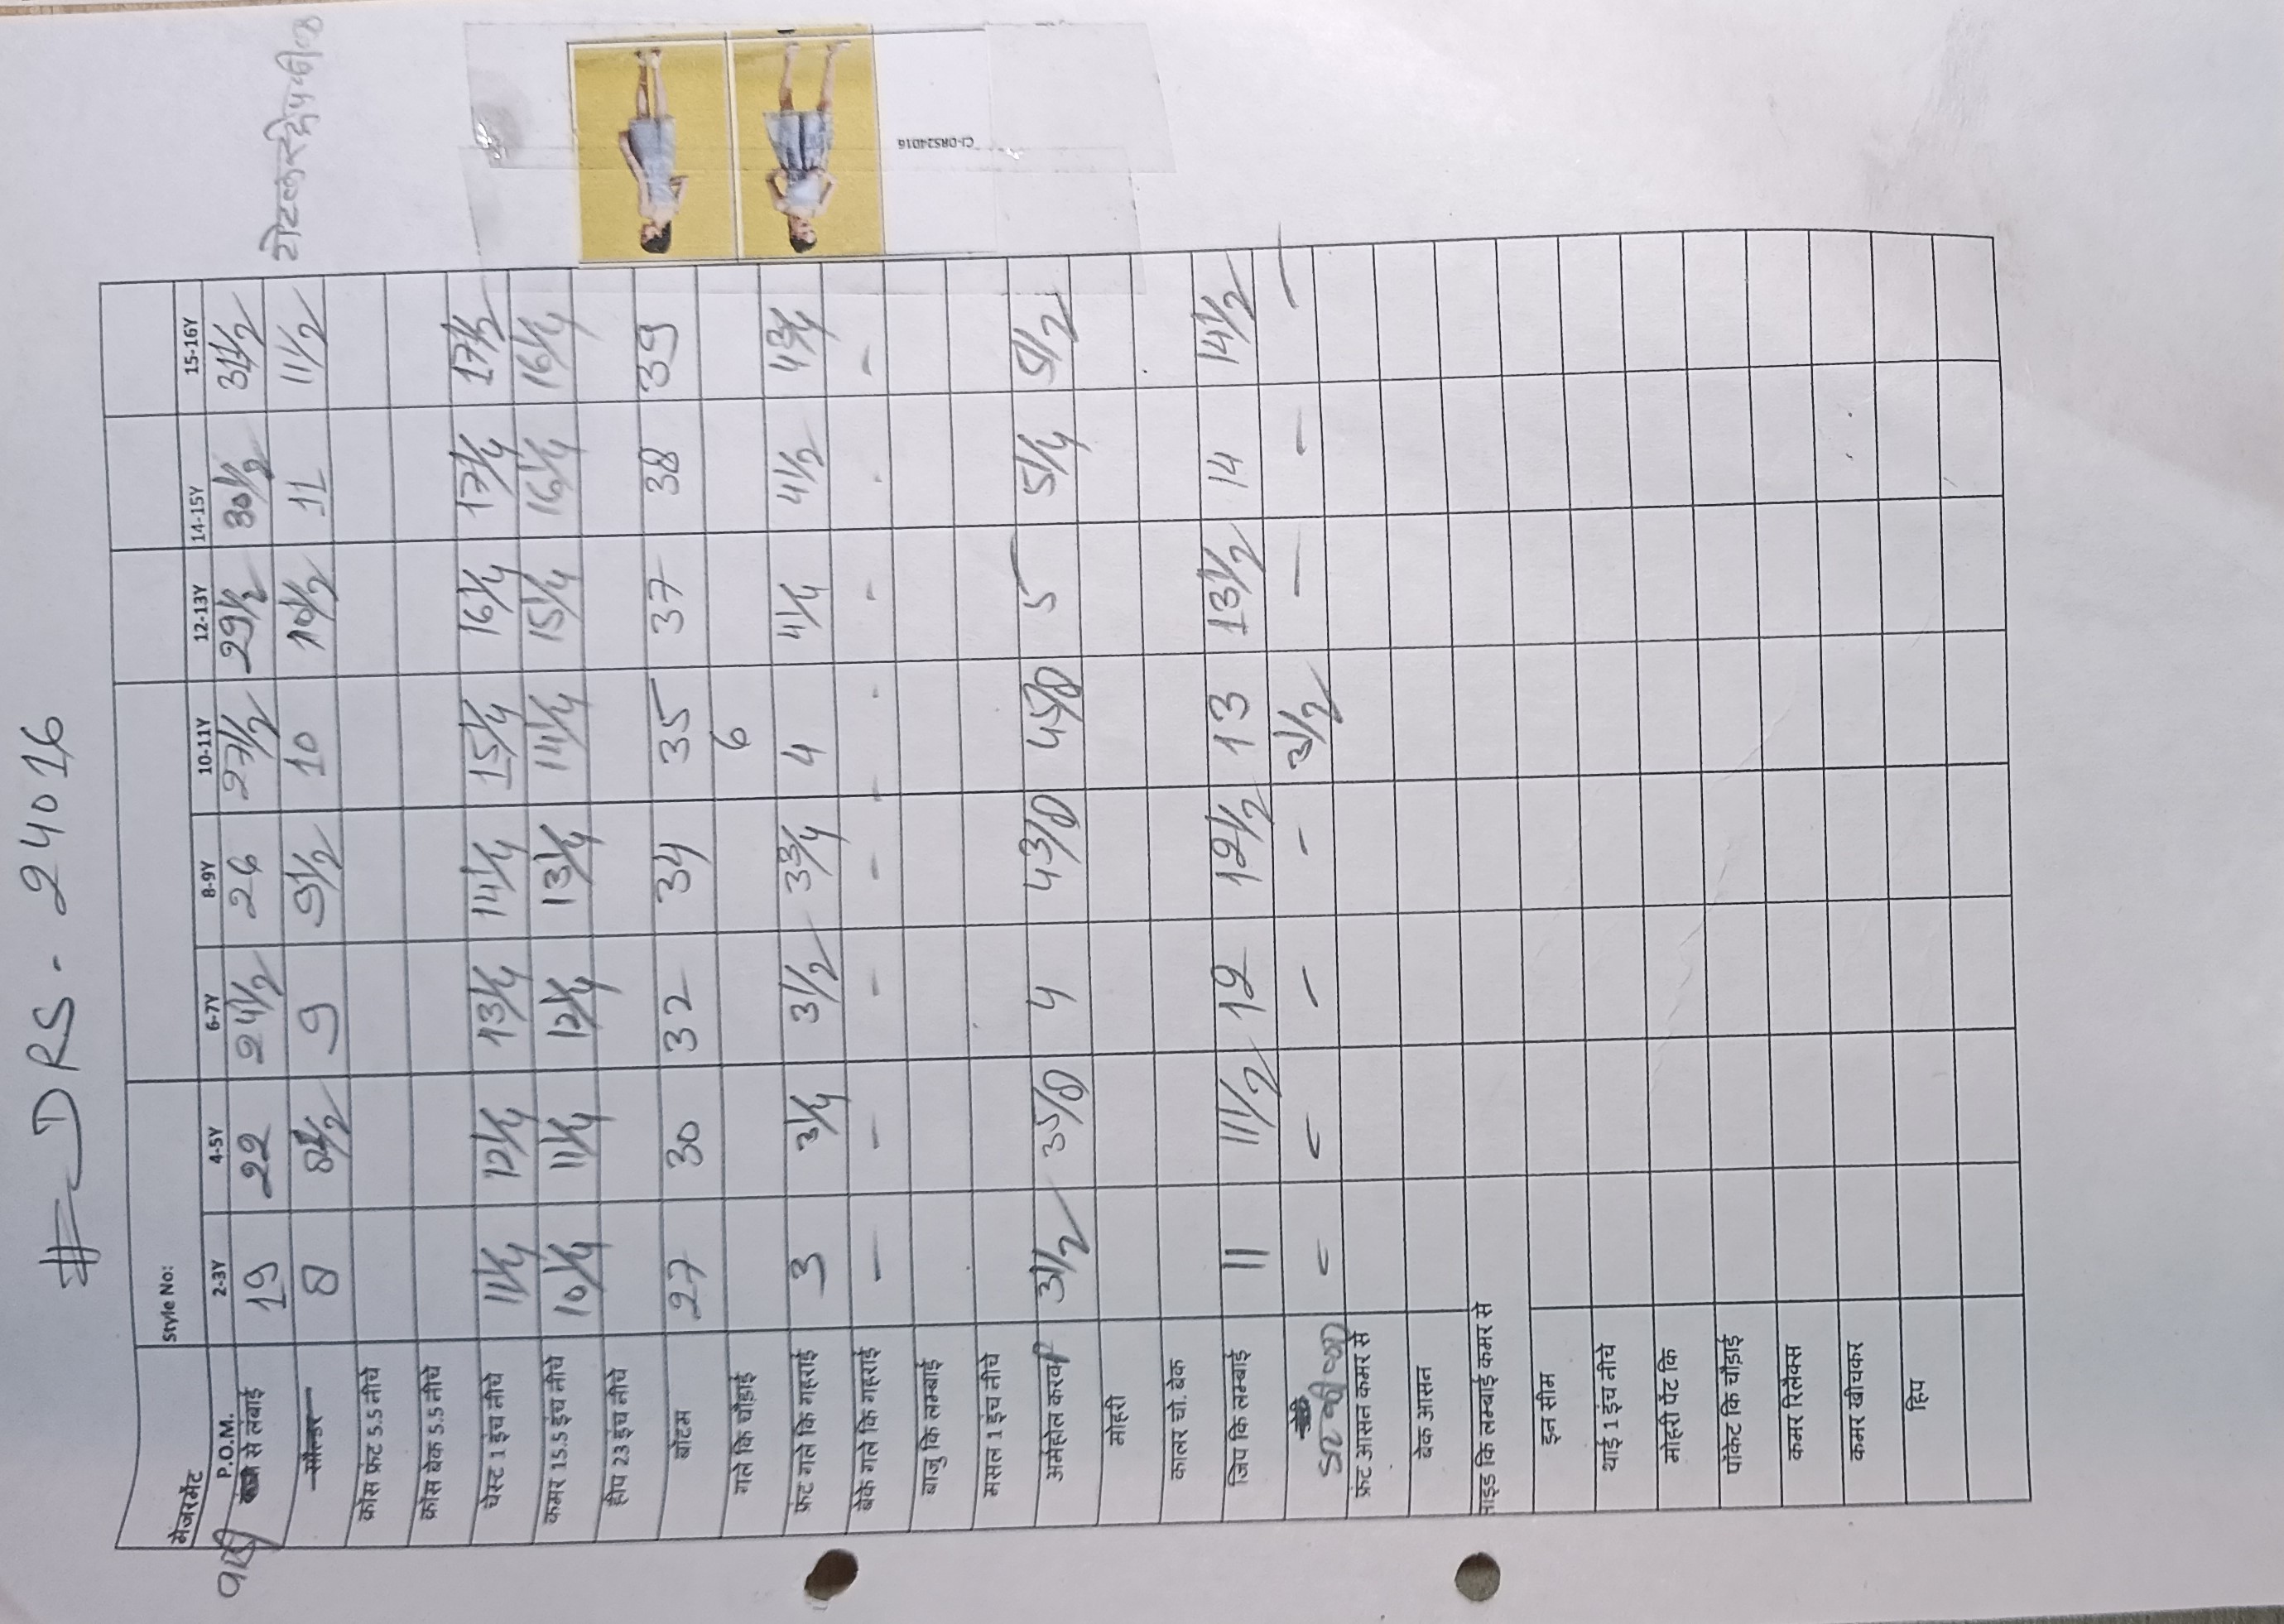 # DRS-24016
मेजरमेंट Style No:
P.O.M. 2-3Y 4-5Y 6-7Y 8-9Y 10-11Y 12-13Y 14-15Y 15-16Y
से लंबाई 19 22 24 1/2 26 27 1/2 29 1/2 30 1/2 31 1/2
सोल्डर 8 8 1/2 9 9 1/2 10 10 1/2 11 11 1/2
क्रॉस फ्रंट 5.5 नीचे
क्रॉस बेक 5.5 नीचे
चेस्ट 1 इंच नीचे 11 1/4 12 1/4 13 1/4 14 1/4 15 1/4 16 1/4 17 1/4 17 1/2
कमर 15.5 इंच नीचे 10 1/4 11 1/4 12 1/4 13 1/4 14 1/4 15 1/4 16 1/4 16 1/4
हीप 23 इंच नीचे
बोटम 27 30 32 34 35 37 38 39
गले कि चौड़ाई 6
फ्रंट गले कि गहराई 3 3 1/4 3 1/2 3 3/4 4 4 1/4 4 1/2 4 3/4
बेके गले कि गहराई - - - - - - - -
बाजु कि लम्बाई
मसल 1 इंच नीचे
अर्महोल करव 3 1/2 3 5/8 4 4 3/8 4 5/8 5 5 1/4 5 1/2
मोहरी
कालर चो. बेक
जिप कि लम्बाई 11 11 1/2 12 12 1/2 13 13 1/2 14 14 1/2
3 1/2
फ्रंट आसन कमर से
बेक आसन
साइड कि लम्बाई कमर से
इन सीम
थाई 1 इंच नीचे
मोहरी पेंट कि
पॉकेट कि चौड़ाई
कमर रिलैक्स
कमर खीचकर
हिप
CJ-DRS24016